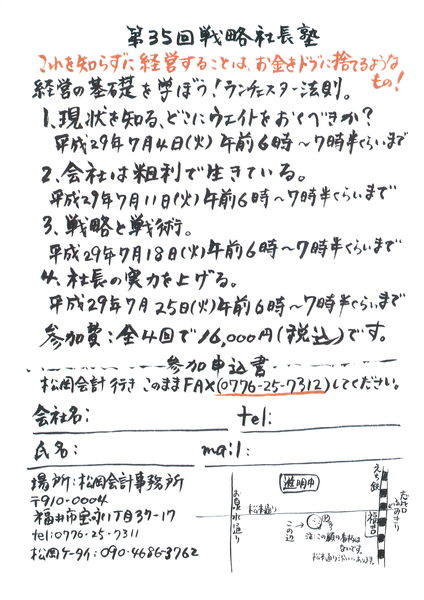 第35回戦略社長塾
これを知らずに経営することは、お金をドブに捨てるような
もの！
経営の基礎を学ぼう！ランチェスター法則。
1、現状を知る、どこにウエイトをおくべきか？
平成29年7月4日(火)午前6時～7時半くらいまで
2、会社は粗利で生きている。
平成29年7月11日(火)午前6時～7時半くらいまで
3、戦略と戦術。
平成29年7月18日(火)午前6時～7時半くらいまで
4、社長の実力を上げる。
平成29年7月25日(火)午前6時～7時半くらいまで
参加費：全4回で16,000円(税込)です。
参加申込書
松岡会計行き このままFAX(0776-25-7312)してください。
会社名： tel:
氏名： mail:
場所：松岡会計事務所
〒910-0004
福井市宝永1丁目37-17
tel:0776-25-7311
松岡ケータイ：090-4686-3762
進明中
お泉水通り
松本通り
この辺
えち鉄
福井口
注：この顔の看板は
ないです。
松本通り沿いにあります。